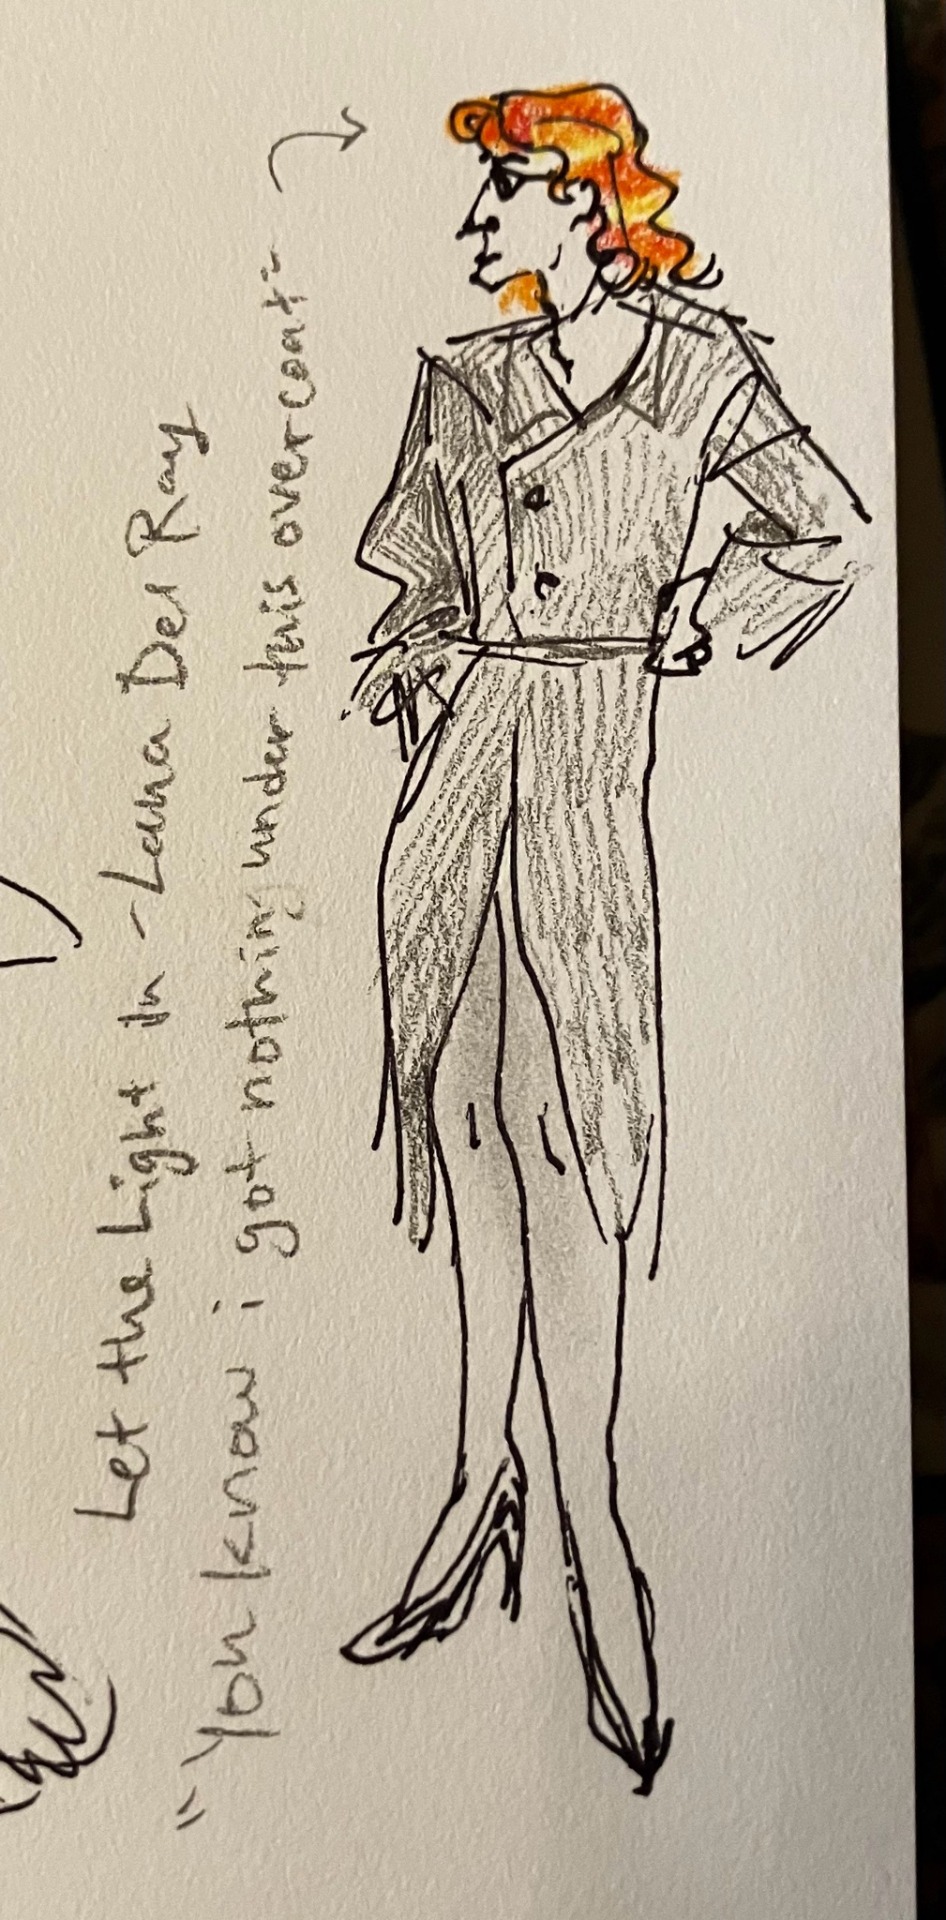 Let the Light In - Lana Del Ray
"You know i got nothing under this overcoat"